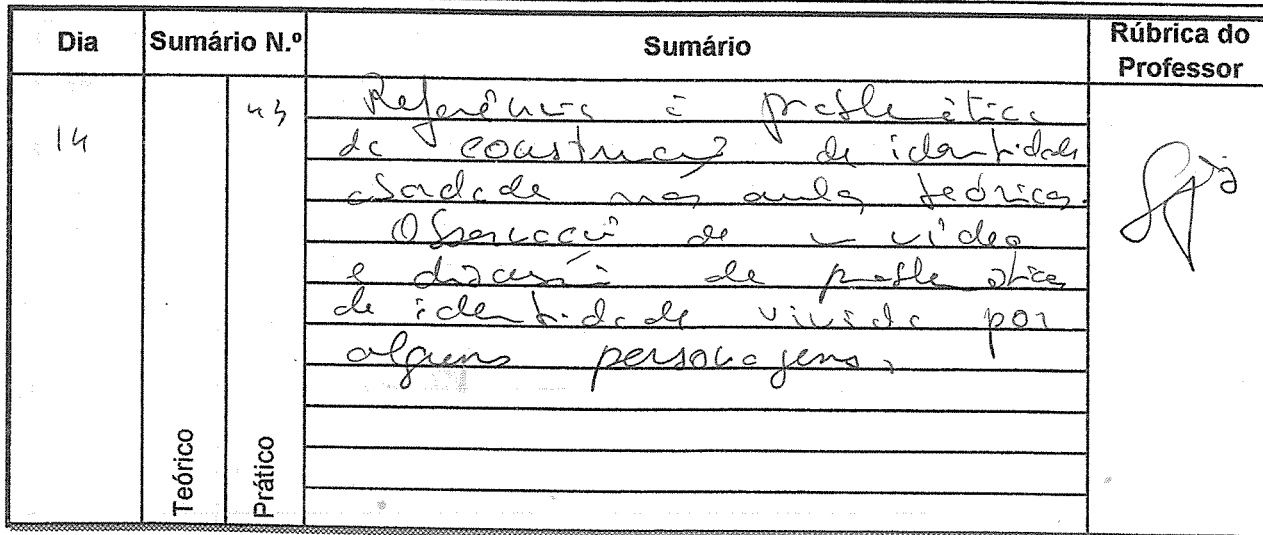 Dia Sumário N.º Sumário Rúbrica do Professor
14
Referência à problemática
da construção da identidade
abordada nas aulas teóricas.
Observação de um vídeo
e discussão da problemática
de identidade vivida por
alguns personagens.
Teórico
Prático